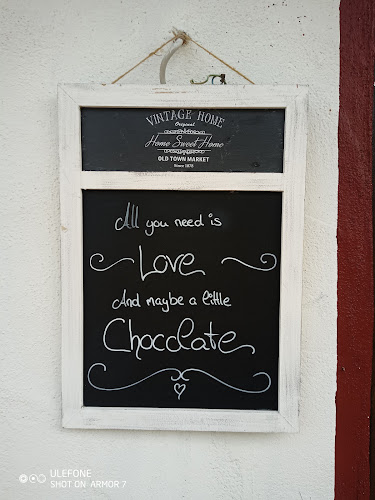 VINTAGE HOME
Original
Home Sweet Home
OLD TOWN MARKET
Since 1875
All you need is
Love
And maybe a little
Chocolate
ULEFONE
SHOT ON ARMOR 7